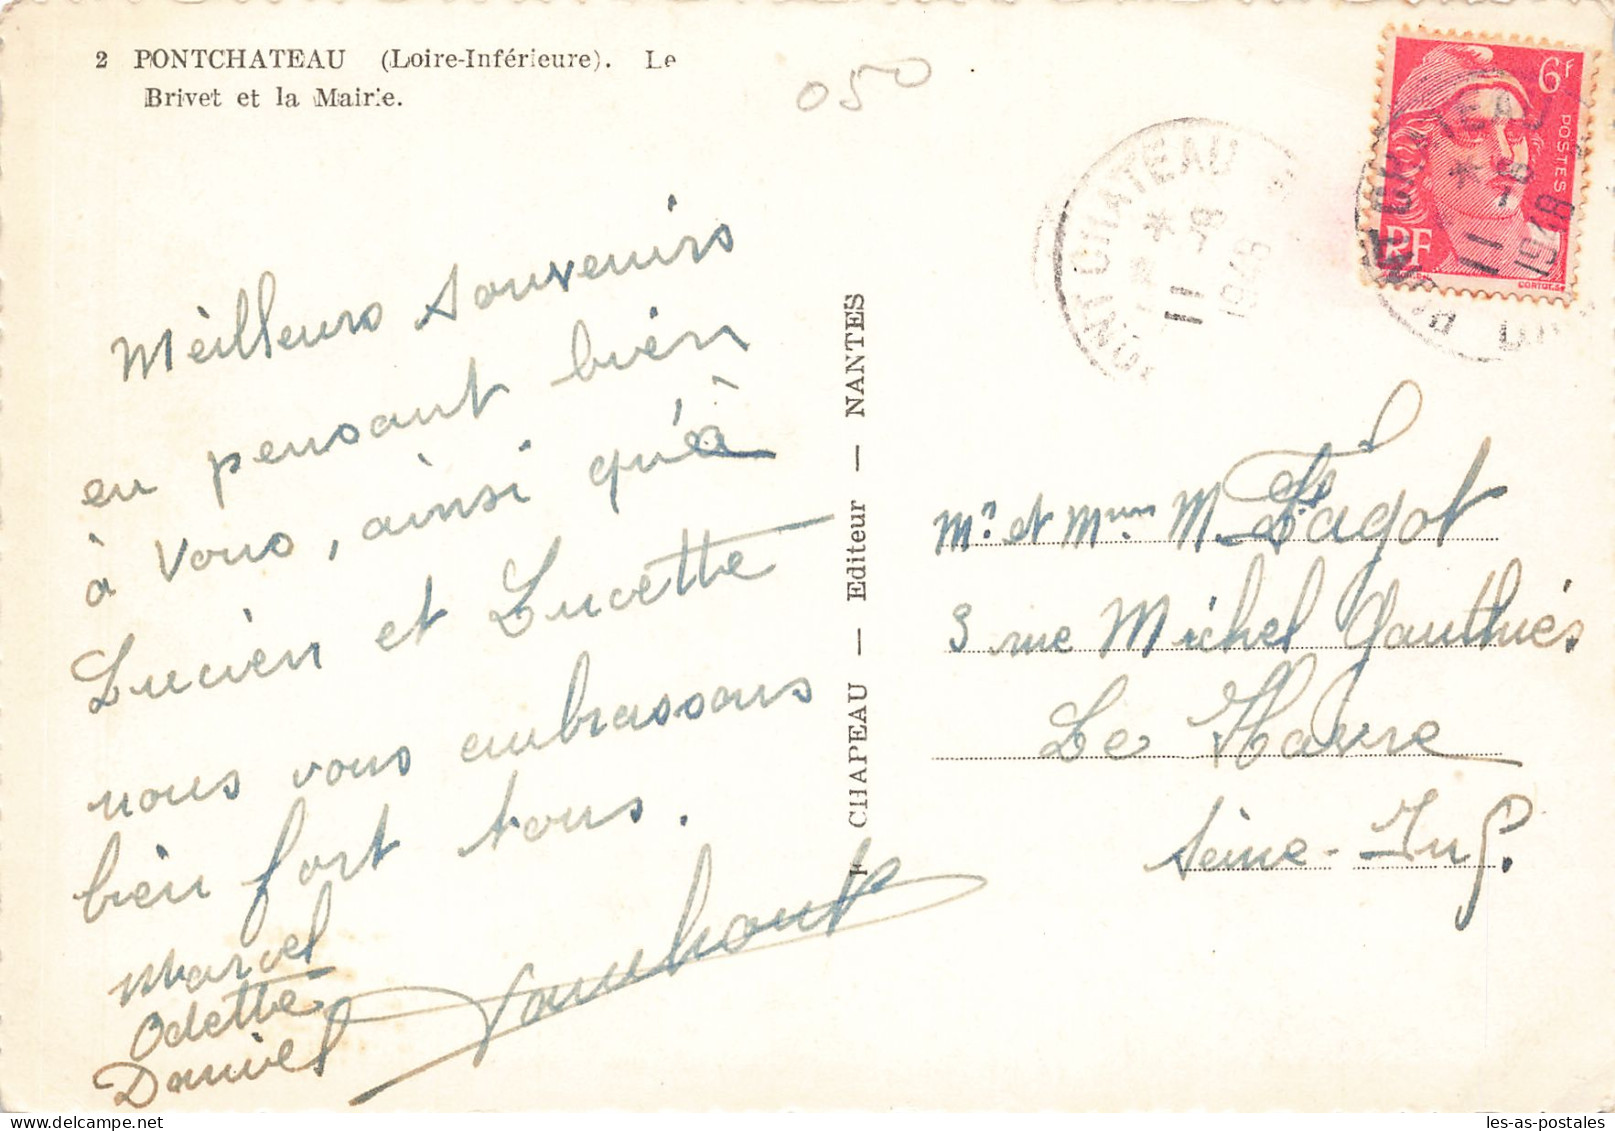 2 PONTCHATEAU (Loire-Inférieure). Le
Brivet et la Mairie.
050
Meilleurs souvenirs
en pensant bien
à vous, ainsi qu'à
Lucien et Lucette
nous vous embrassons
bien fort tous.
Marcel
Odette
Daniel
F CHAPEAU — Editeur — NANTES
PONT CHATEAU
11 -8
1948
6F
POSTES
RF
PONT CHATEAU
11 -8
1948
Mr et Mme M. Fagot
3 rue Michel Gauthiés
Le Havre
Seine-Inf.
les-as-postales.com